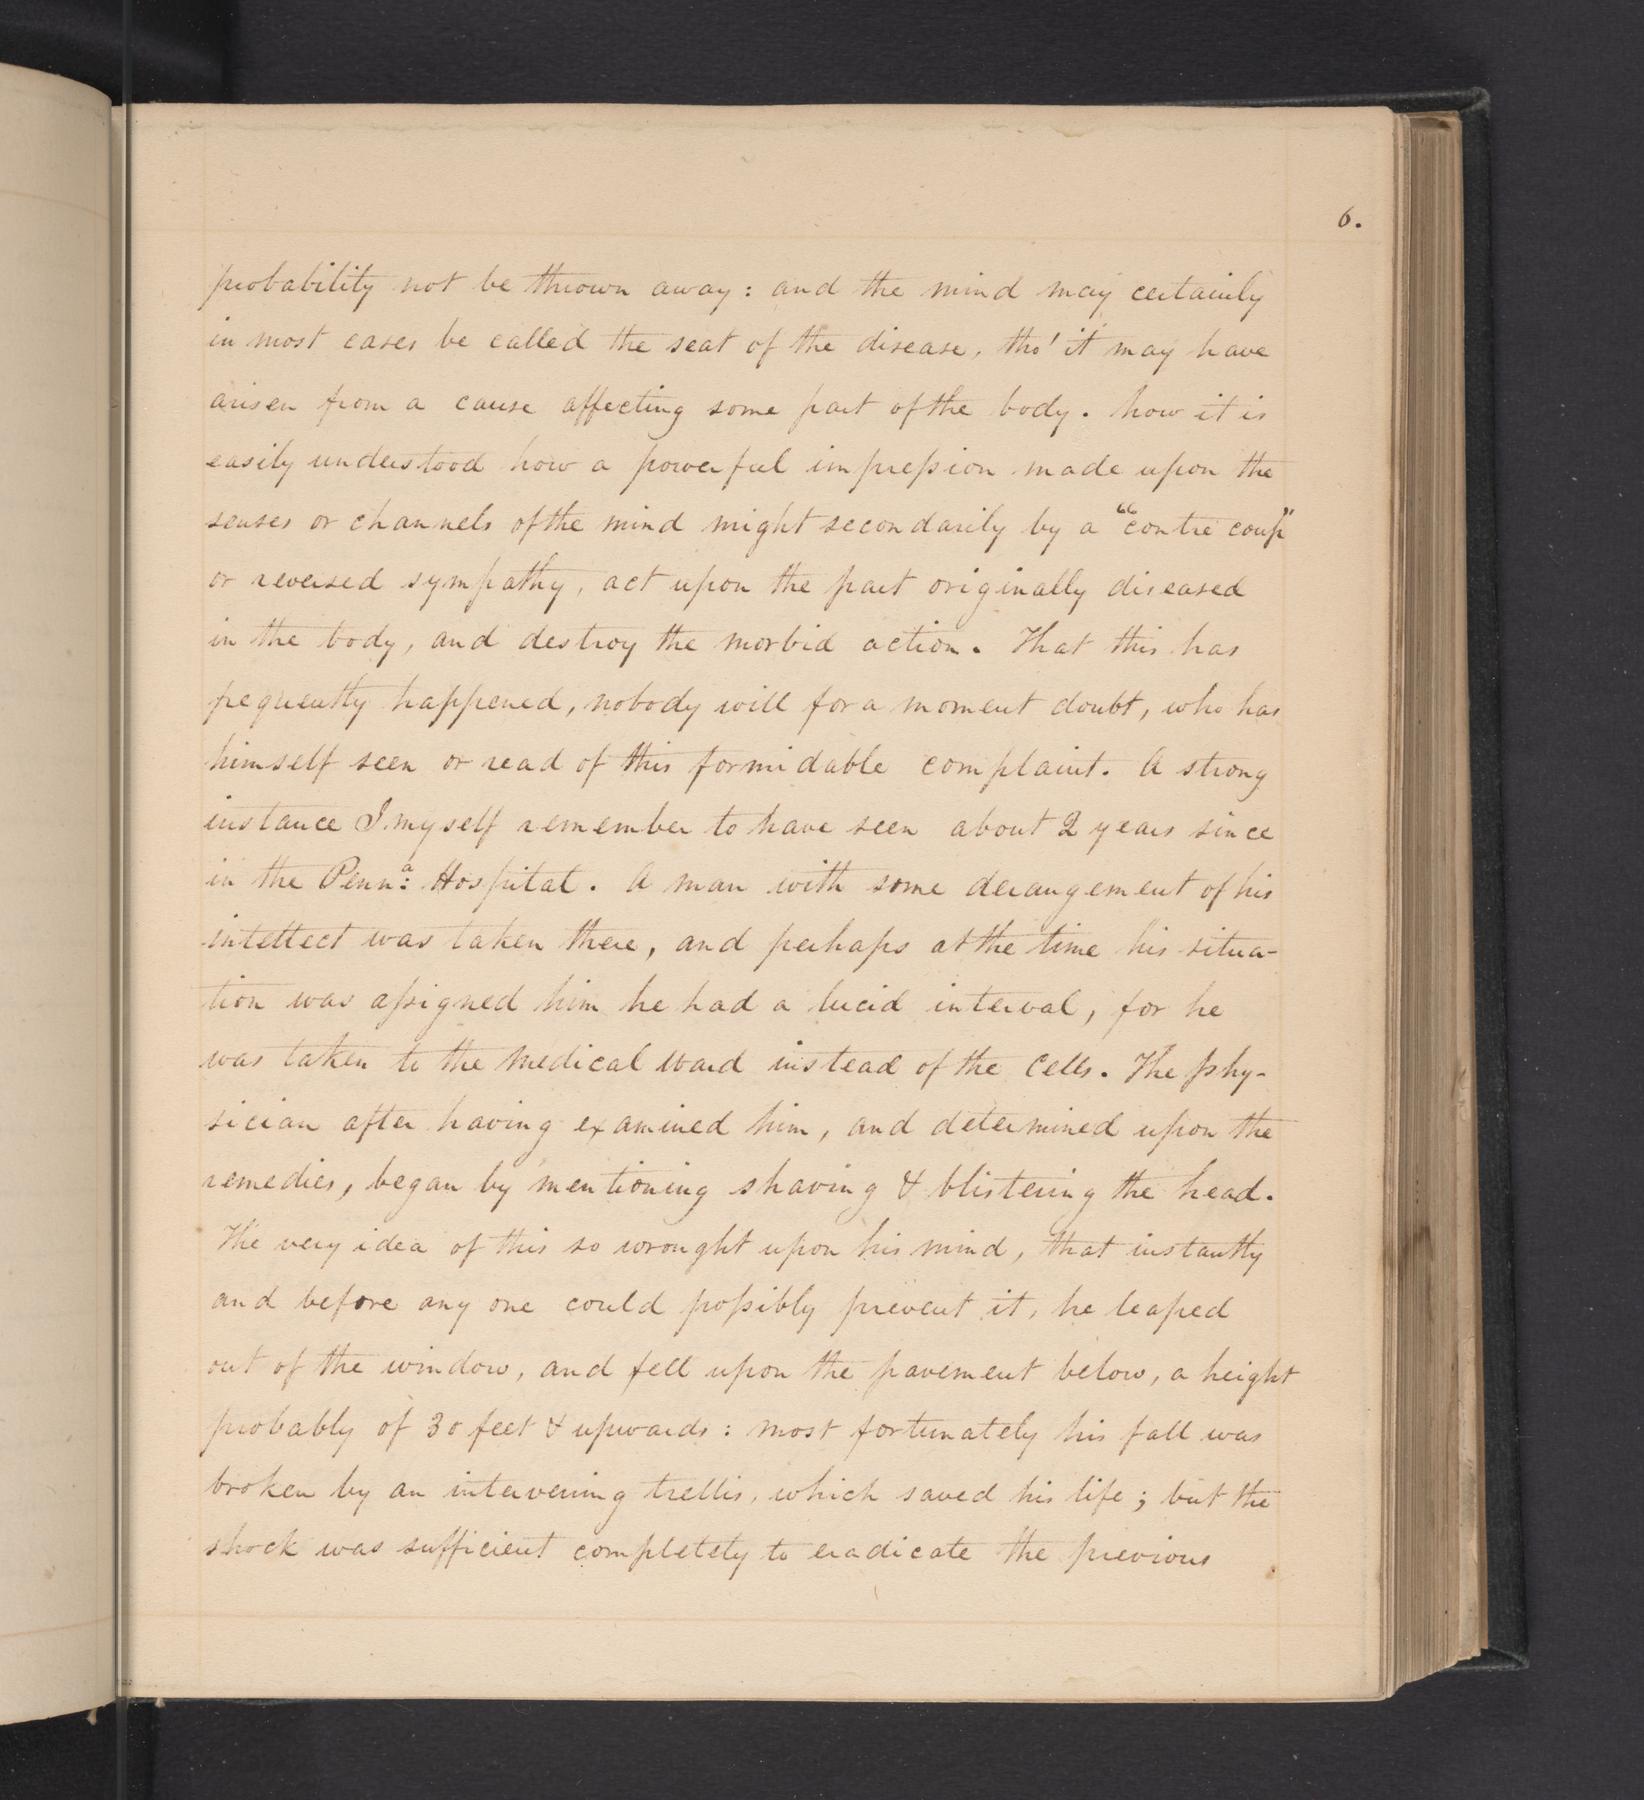 6.
probability not be thrown away: and the mind may certainly
in most cases be called the seat of the disease, tho' it may have
arisen from a cause affecting some part of the body. how it is
easily understood how a powerful impreſsion made upon the
senses or channels of the mind might secondarily by a "contre coup"
or reversed sympathy, act upon the part originally diseased
in the body, and destroy the morbid action. That this has
frequently happened, nobody will for a moment doubt, who has
himself seen or read of this formidable complaint. A strong
instance I myself remember to have seen about 2 years since
in the Pennᵃ: Hospital. A man with some derangement of his
intellect was taken there, and perhaps at the time his situa-
tion was aſsigned him he had a lucid interval, for he
was taken to the Medical Ward instead of the Cells. The phy-
sician after having examined him, and determined upon the
remedies, began by mentioning shaving & blistering the head.
The very idea of this so wrought upon his mind, that instantly
and before any one could poſsibly prevent it, he leaped
out of the window, and fell upon the pavement below, a height
probably of 30 feet & upwards: most fortunately his fall was
broken by an intervening trellis, which saved his life; but the
shock was sufficient completely to eradicate the previous